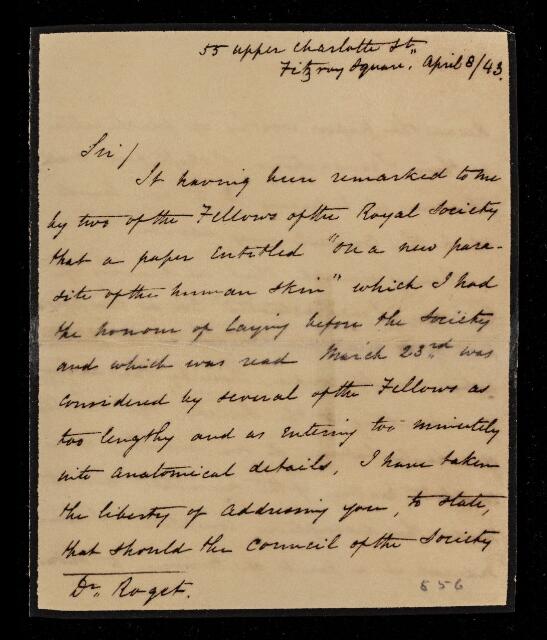 55 upper Charlotte St,,
Fitzroy Square. April 8/43.
Sir/
It having been remarked to me
by two of the Fellows of the Royal Society
that a paper entitled "on a new para-
site of the human skin" which I had
the honour of laying before the Society
and which was read March 23rd was
considered by several of the Fellows as
too lengthy and as entering too minutely
into anatomical details, I have taken
the liberty of addressing you, to state,
that should the Council of the Society
Dr,, Roget.
856